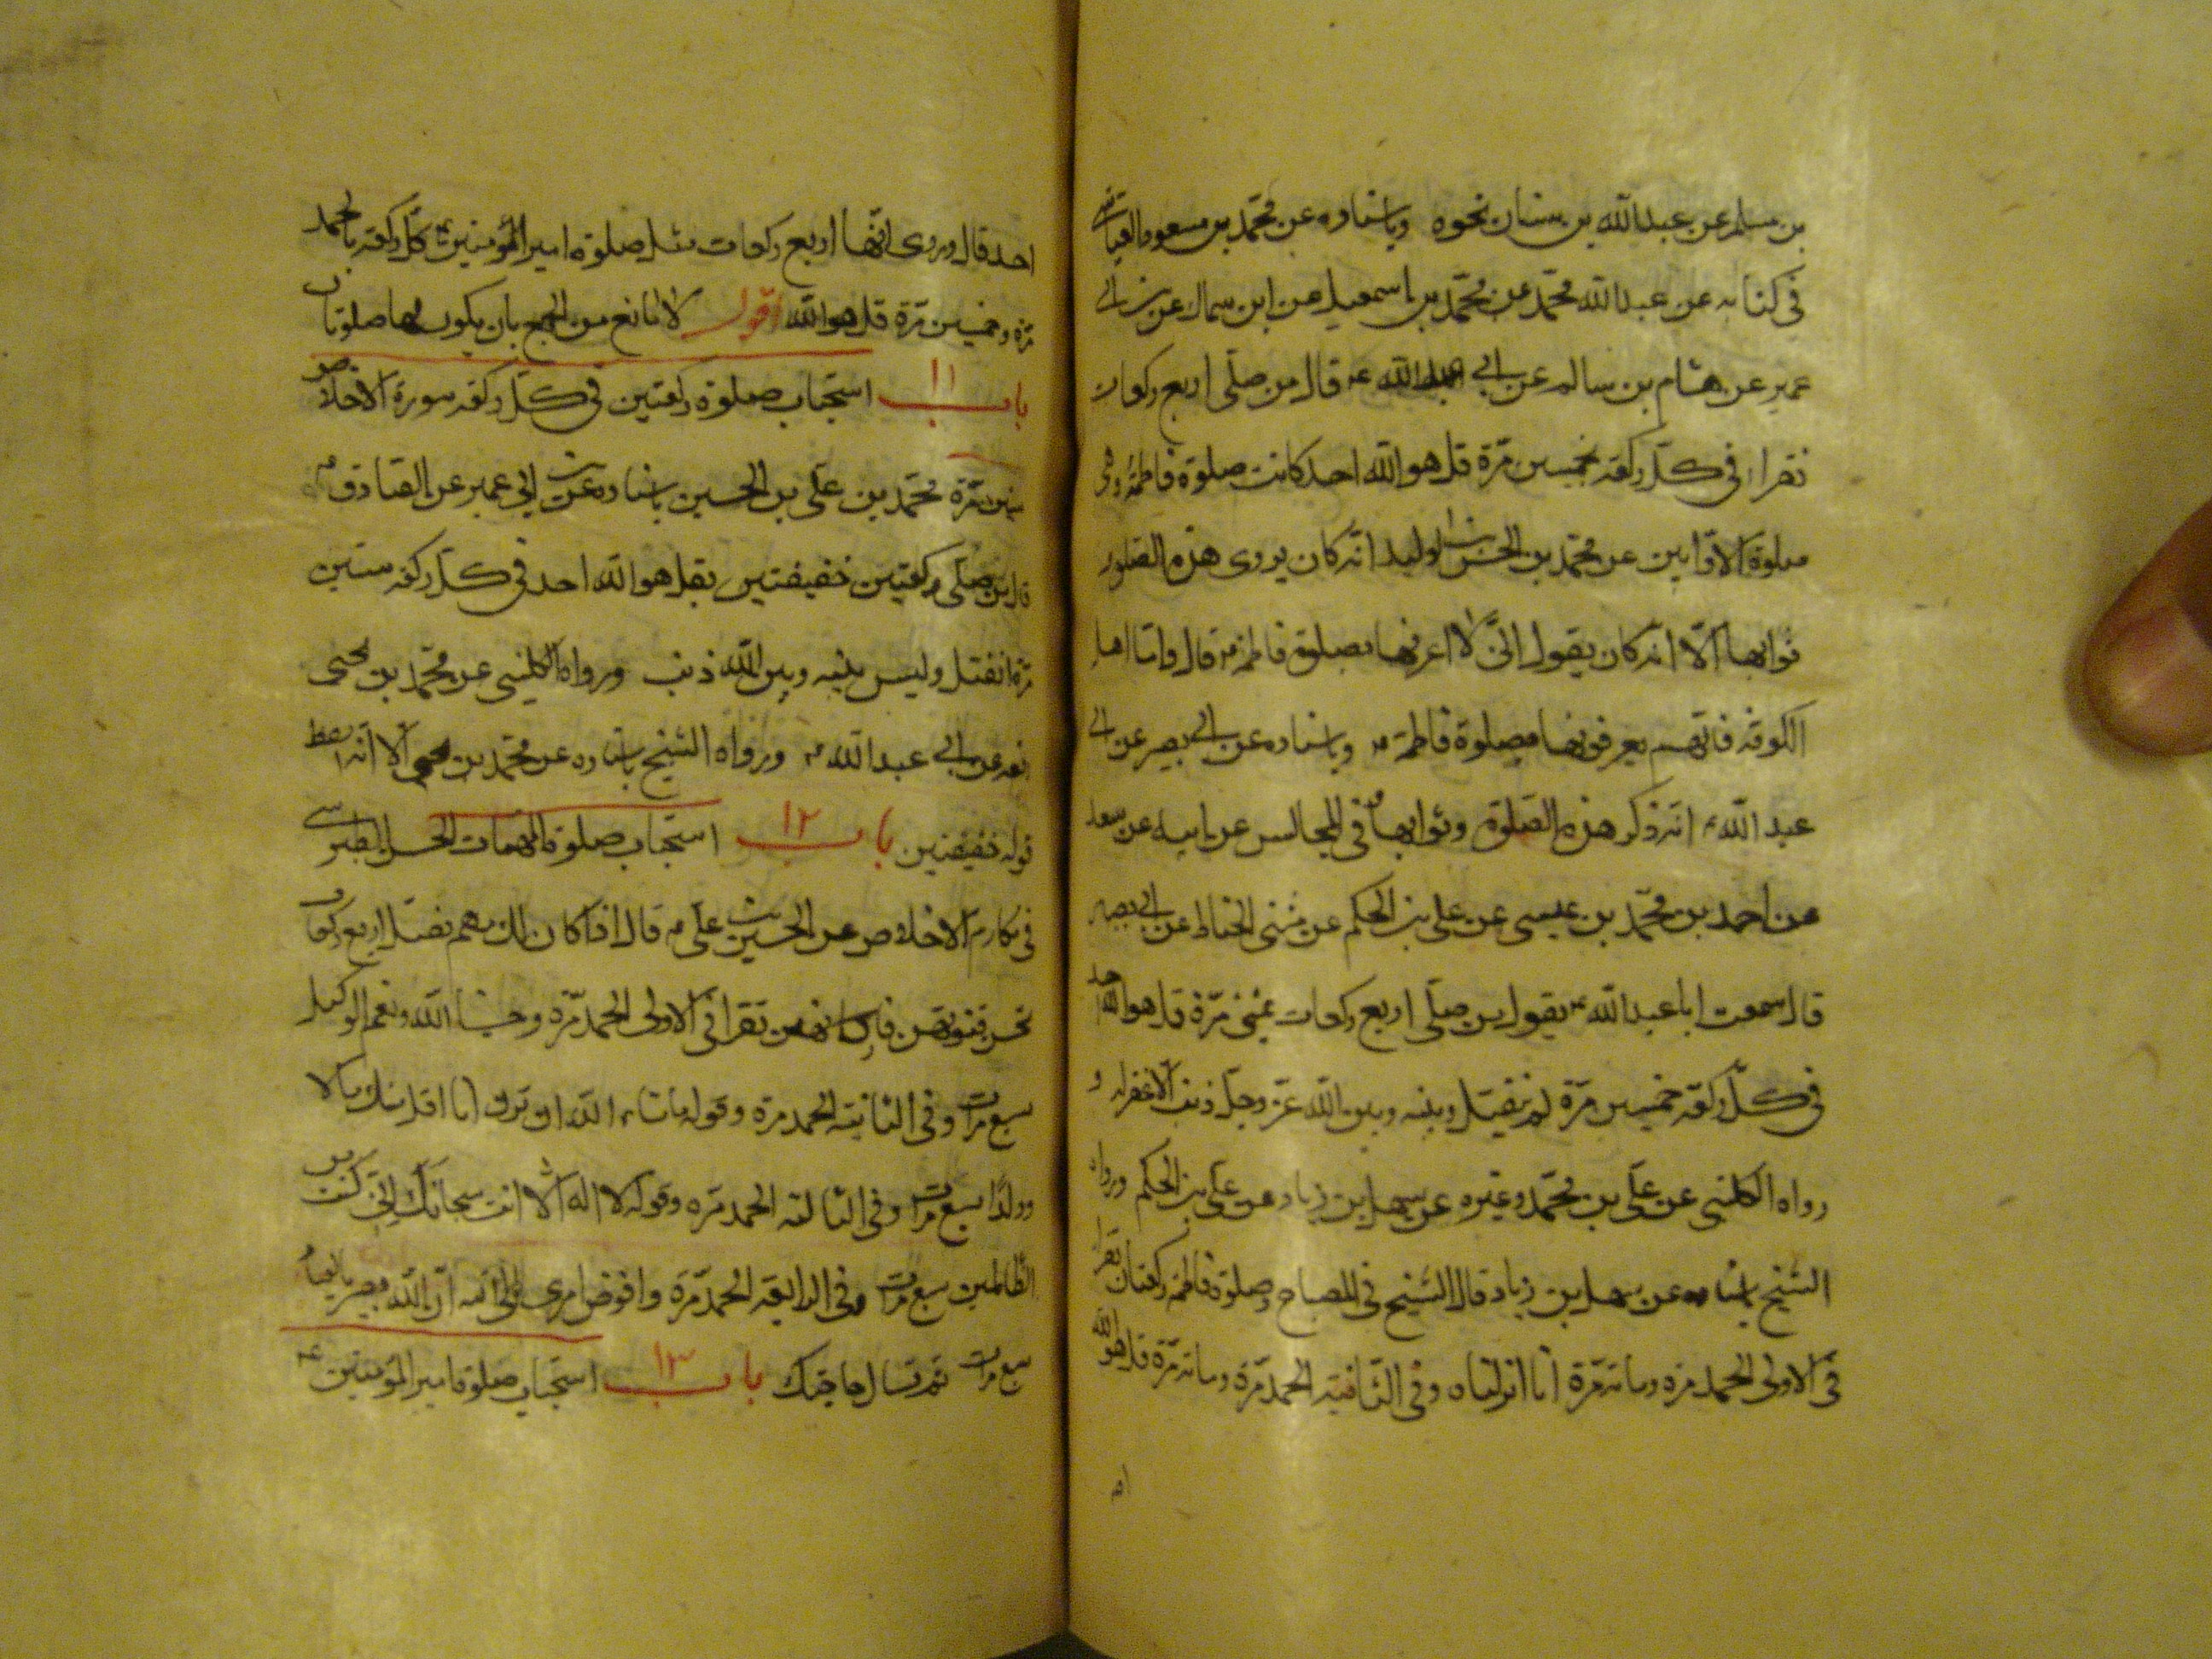 بن مسلم عن عبدالله بن سنان نحوه وباسناده عن محمّد بن مسعود العياشى
فى كتابه عن عبدالله محمّد عن محمّد بن اسمعيل عن ابن سماك عن بن ابى
عمير عن هشام بن سالم عن ابى عبدالله ع قال من صلّى اربع ركعات
فقرا فى كلّ ركعة بخمسين مرّة قل هو الله احد كانت صلوة فاطمة وهى
صلوة الاوّابين عن محمّد بن الحسن بن الوليد انّه كان يروى هذه الصلوة
ثوابها الّا انّه كان يقول انّى لا اعرفها بصلوة فاطمة ع قال وامّا اهل
الكوفة فانّهم يعرفونها بصلوة فاطمة ع وباسناده عن ابى بصير عن ابى
عبد الله ع انّه ذكر هذه الصّلوة وثوابها وفى المجالس عن ابيه عن سعد
عن احمد بن محمّد بن عيسى عن على بن الحكم عن مثنى الحناط عن ابى بصير
قال سمعت ابا عبدالله ع يقول من صلّى اربع ركعات بمئتى مرّة قل هو الله احد
فى كلّ ركعة خمسين مرّة لم ينفتل وبينه وبين الله عزّ وجلّ ذنب الّا غفر له و
رواه الكلينى عن علّى بن محمّد وغيره عن سهل بن زياد عن علّى بن الحكم ورواه
الشّيخ باسناده عن سهل بن زياد قال الشّيخ فى المصباح وصلوة فاطمة ركعتان تقرا
فى الاولى الحمد مرّة ومائة مرّة انّا انزلناه وفى الثّانية الحمد مرّة ومائة مرّة قل هو الله
احد قال وروى انّها اربع ركعات مثل صلوة امير المؤمنين ع كلّ ركعة بالحمد
مرّة وخمسين مرّة قل هو الله اقول لا مانع من الجمع بان يكون لها صلوتان
باب ١١ استحباب صلوة ركعتين فى كلّ ركعة سورة الاخلاص
ستين مرّة محمّد بن علّى بن الحسين باسناده عن بن ابى عمير عن الصّادق ع
قال من صلّى ركعتين خفيفتين بقل هو الله احد فى كلّ ركعة ستين
مرّة انفتل وليس بينه وبين الله ذنب ورواه الكلينى عن محمّد بن يحيى
رفعه عن ابى عبدالله ع ورواه الشّيخ باسناده عن محمّد بن يحيى الّا انّه اسقط
قوله خفيفتين باب ١٢ استحباب صلوة المهمات الحسن الطبرسى
فى مكارم الاخلاص عن الحسين بن على ع قال اذا كان لك مهم فصلّ اربع ركعات
تحسن قنوتهن واركانهن تقرا فى الاولى الحمد مرّة وحسبنا الله ونعم الوكيل
سبع مرّات وفى الثانية الحمد مرّة وقوله ما شاء الله ان ترن انا اقل منك مالا
وولدًا سبع مرّات وفى الثالثة الحمد مرّه وقوله لا اله الّا انت سبحانك انّى كنت من
الظّالمين سبع مرّات وفى الرابعة الحمد مرّة وافوّض امرى الى الله انّ الله بصير بالعباد
سبع مرّات ثم تسال حاجتك باب ١٣ استحباب صلوة امير المؤمنين ع